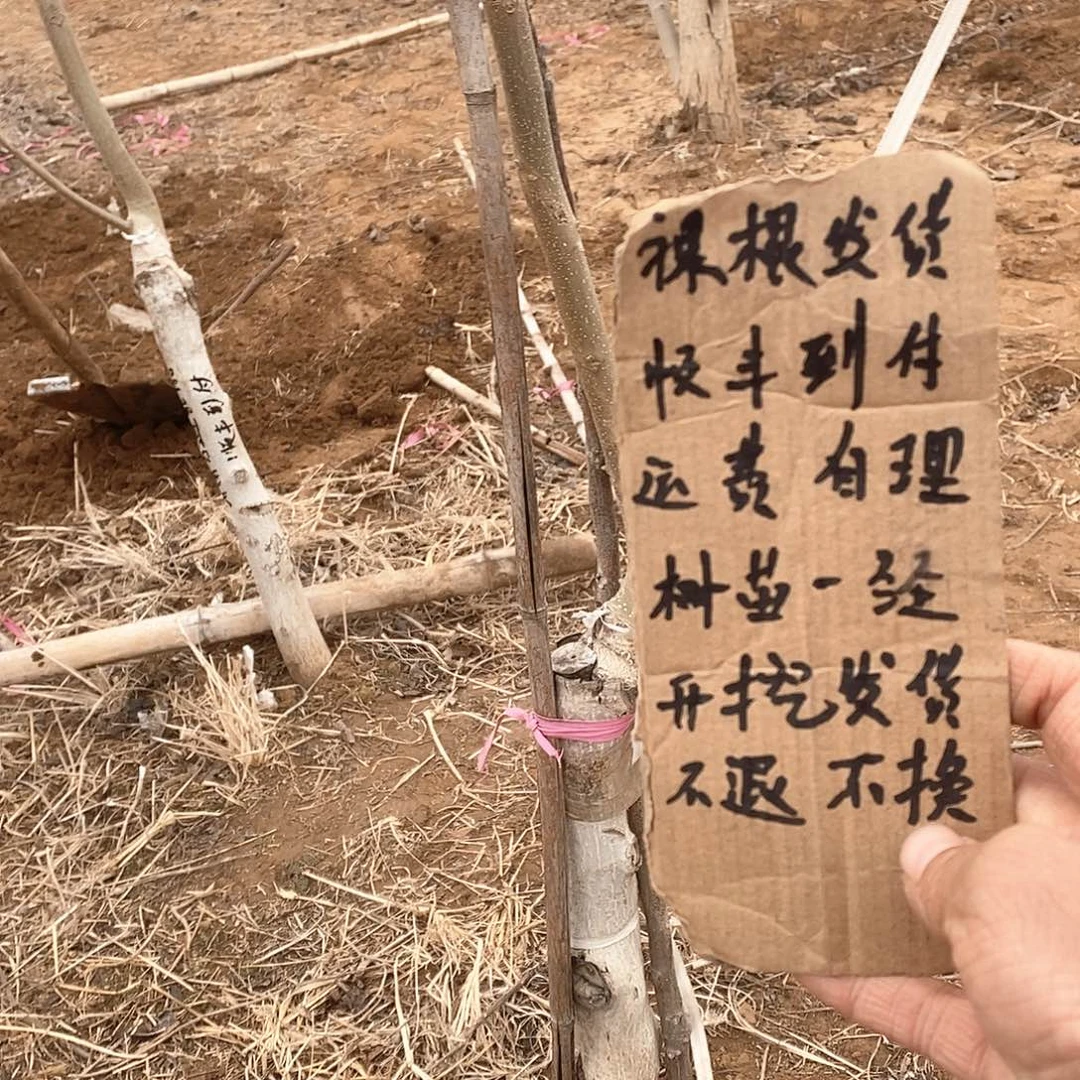 裸根发货
顺丰到付
运费自理
树苗一经
开挖发货
不退不换